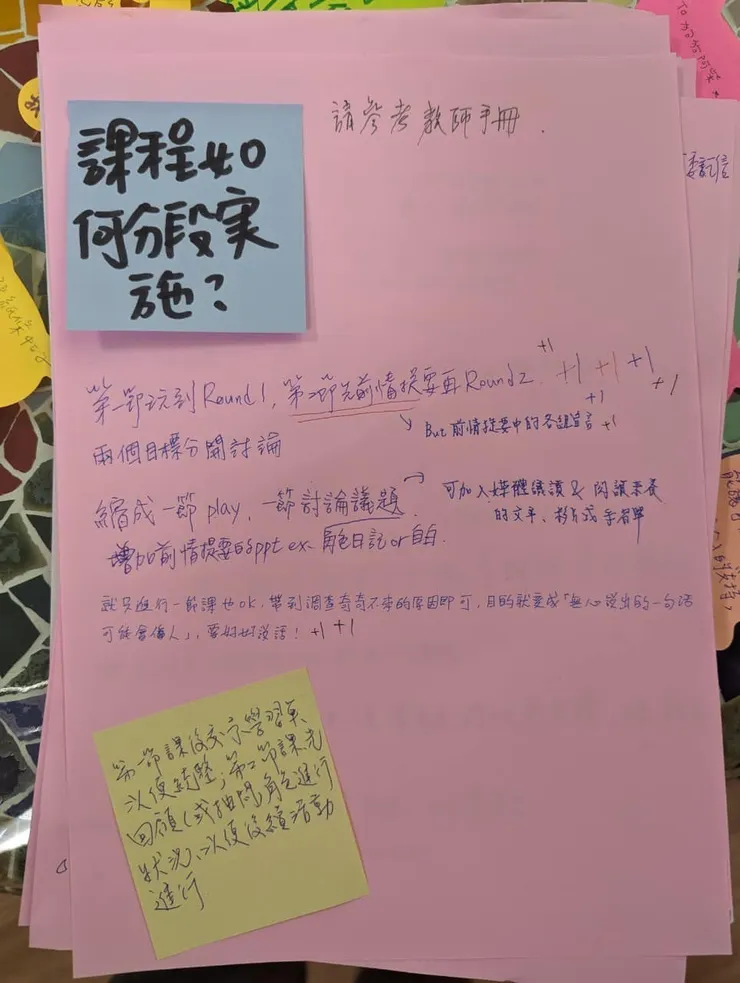 課程如
何分段実
施?
請參考教師手冊.
第一節玩到Round 1, 第二節先前情提要再Round 2. +1 +1 +1 +1 +1 +1
But 前情提要中的各組宣言 +1
兩個目標分開討論
縮成一節play, 一節討論議題.
可加入媒體識讀 & 閱讀素養
的文字、
增加前情提要的ppt ex. 角色日記 or 自白.
就只進行一節課也OK, 帶到調查奇奇不來的原因即可, 目的就變成「無心說出的一句話
可能會傷人」, 要好好說話! +1 +1
第一節課後交示學習單
以便統整; 第二節課先
回顧(或抽問角色進行
狀況), 以便後續活動
進行
委託信